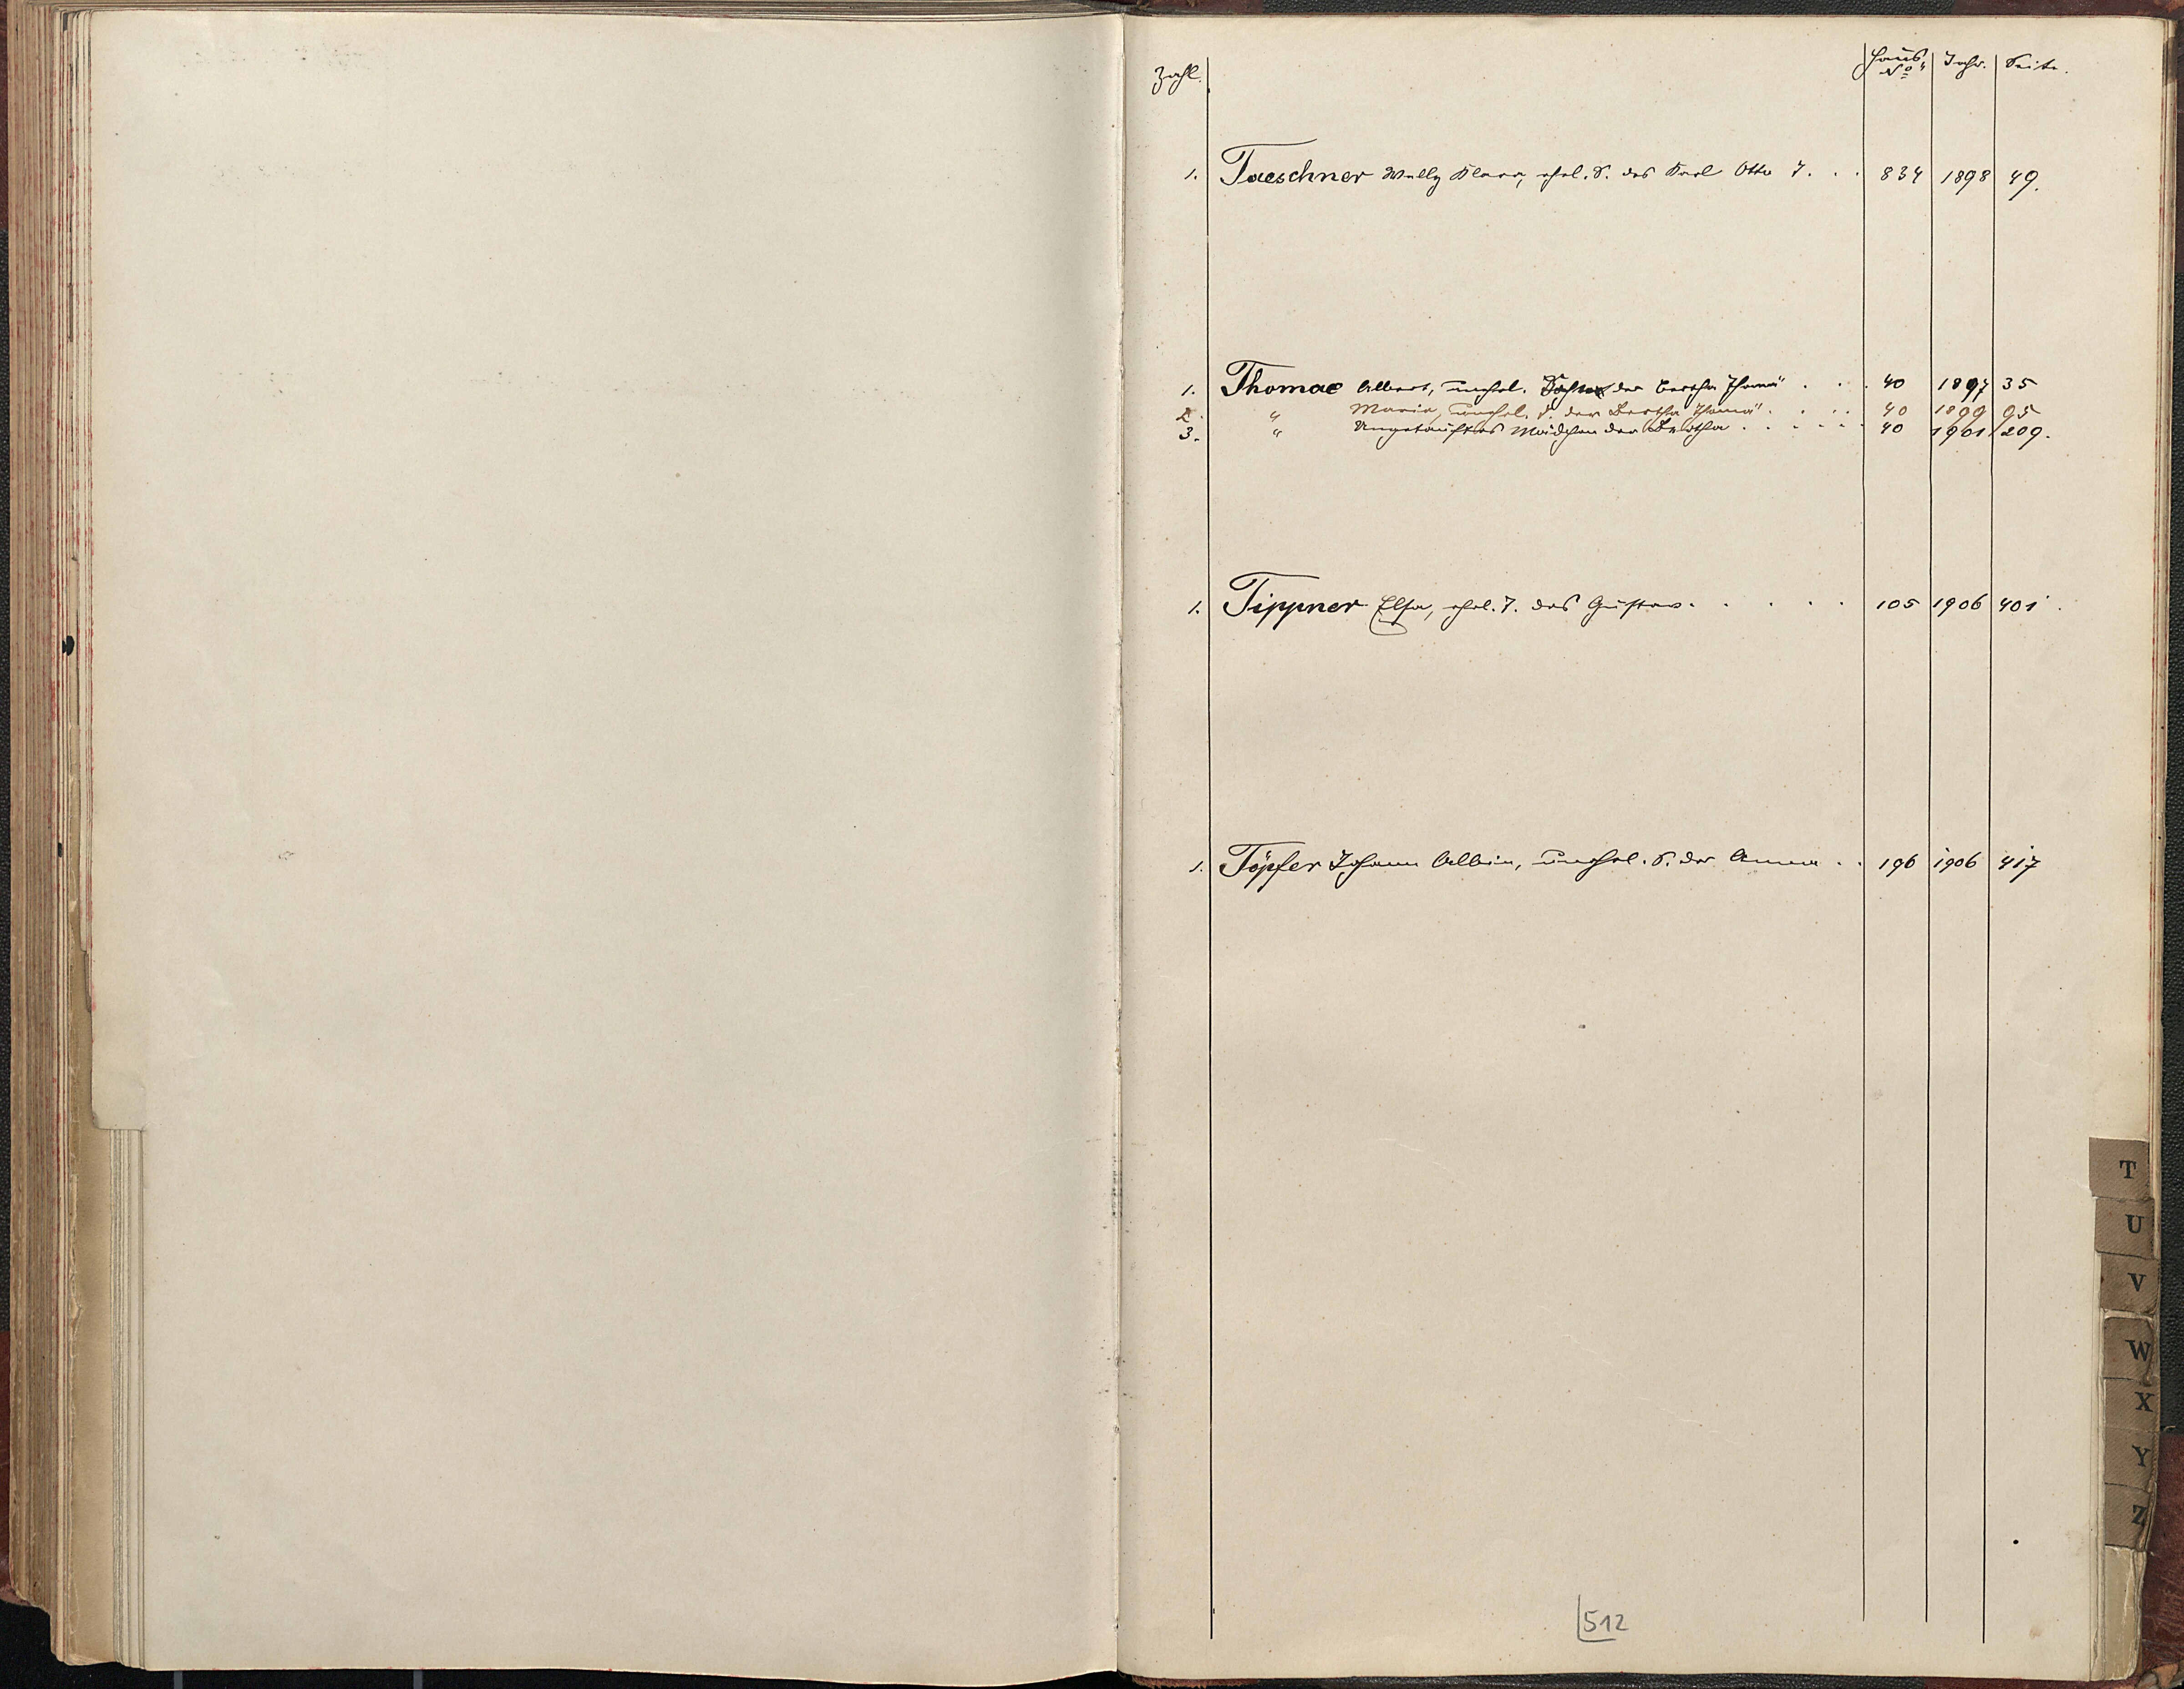 Zahl. Haus No Jahr. Seite.
1. Taeschner Willy Klara, ehel. S. des Karl Otto T. . . 834 1898 49.
1. Thomae Albert, unehel. Sohn der Bertha Thomä . . . 40 1897 35
2. " Maria, unehel. T. der Bertha Thomä . . . . 40 1899 95
3. " Ungetauftes Mädchen der Bertha . . . . . . 40 1901 209.
1. Tippner Elsa, ehel. T. des Gustav . . . . . 105 1906 401.
1. Töpfer Johann Albin, unehel. S. der Anna . . 196 1906 417
T
U
V
W
X
Y
Z
512